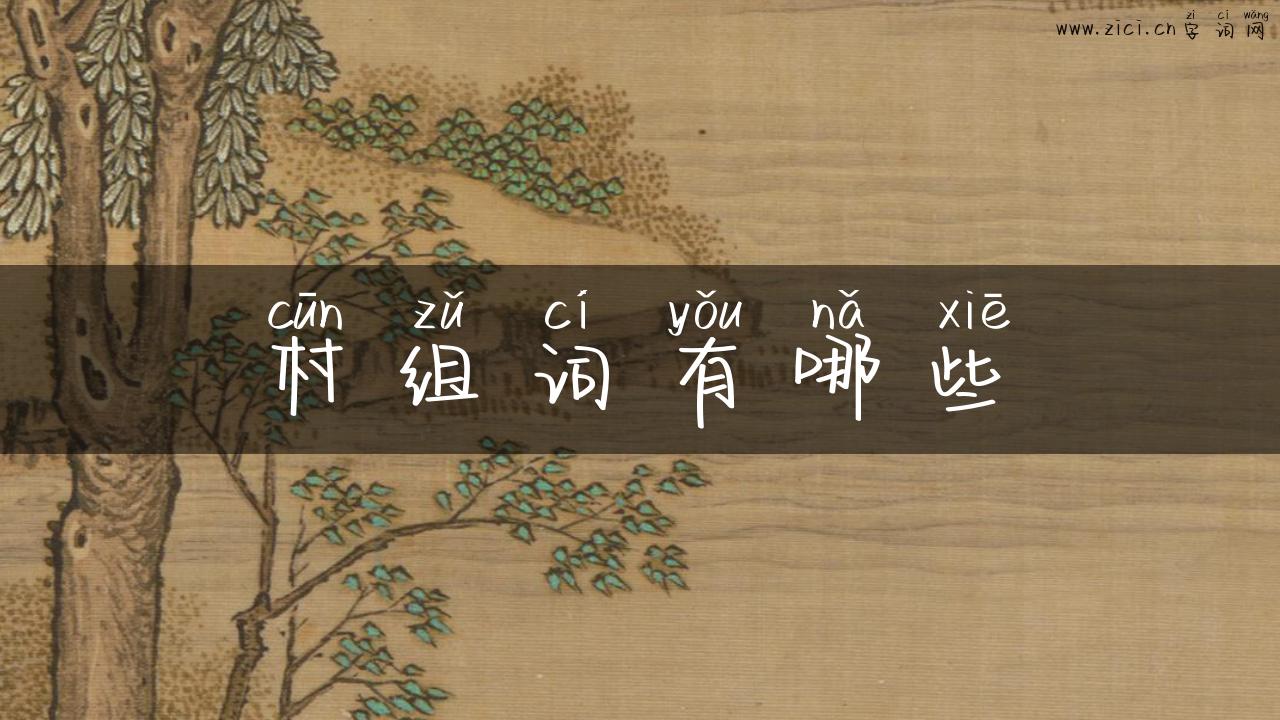 zì cí wǎng
www.zici.cn字词网
cūn zǔ cí yǒu nǎ xiē
村组词有哪些